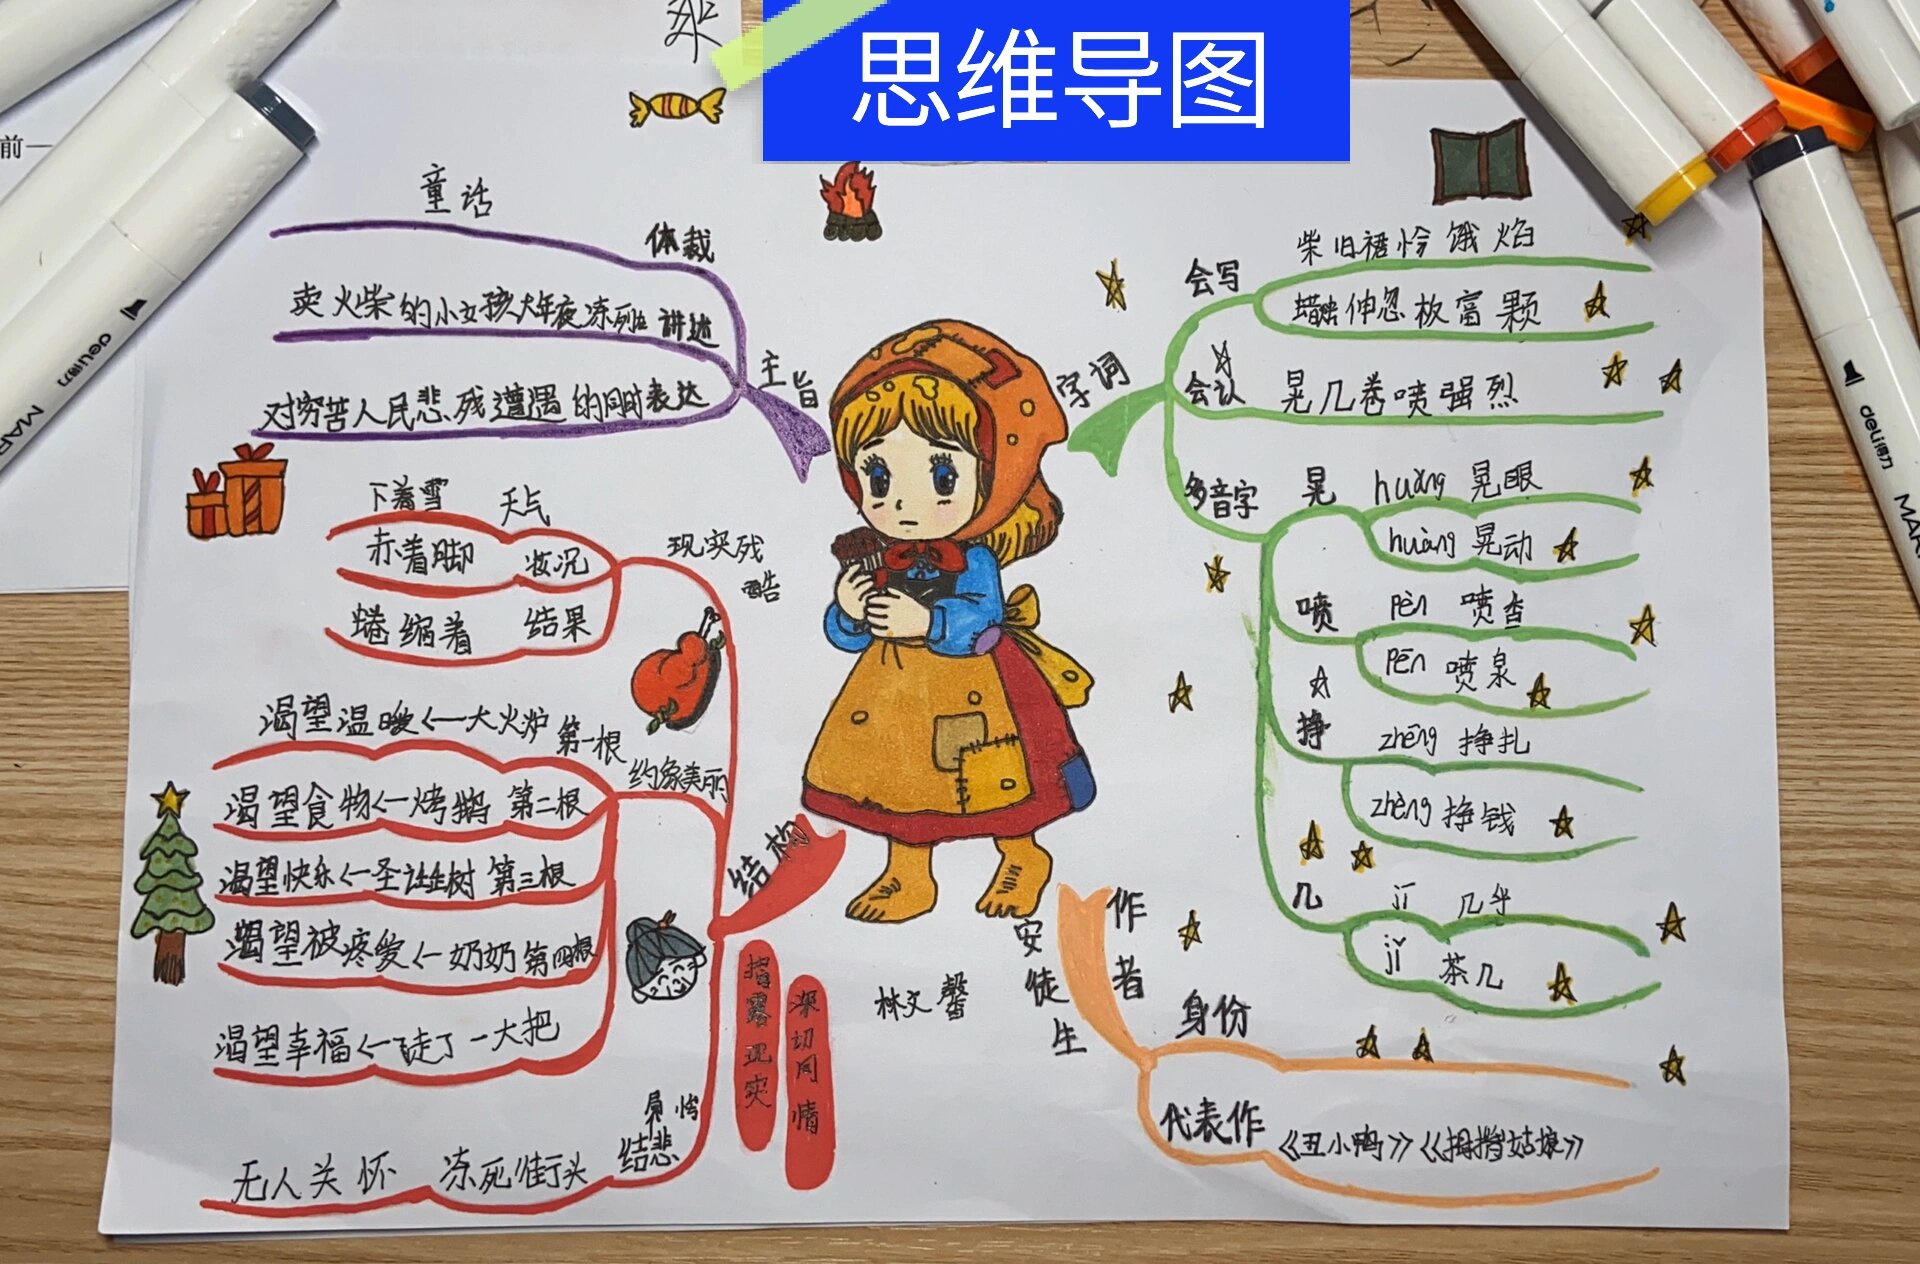 思维导图
前一
童话
体裁
卖火柴的小女孩大年夜冻死在
讲述
对穷苦人民悲残遭遇的同时
表达
主旨
下着雪
天气
赤着脚
状况
蜷缩着
结果
现实残酷
渴望温暖<—大火炉
第一根
渴望食物<—烤鹅
第二根
渴望快乐<—圣诞树
第三根
渴望被疼爱<—奶奶
第四根
渴望幸福<—
一大把
美丽
结构
无人关怀
冻死街头
结悲
现实
深切同情
林文馨
字词
会写
柴旧裙怜饿焰
蜡烛伸忽板富颗
会认
晃几卷喷强烈
多音字
晃
huǎng 晃眼
huàng 晃动
喷
pèn 喷香
pēn 喷泉
挣
zhēng 挣扎
zhèng 挣钱
几
jī 几乎
jǐ 茶几
作者
安徒生
身份
代表作
《丑小鸭》《拇指姑娘》
deli得力
MAR
deli得力
MAR